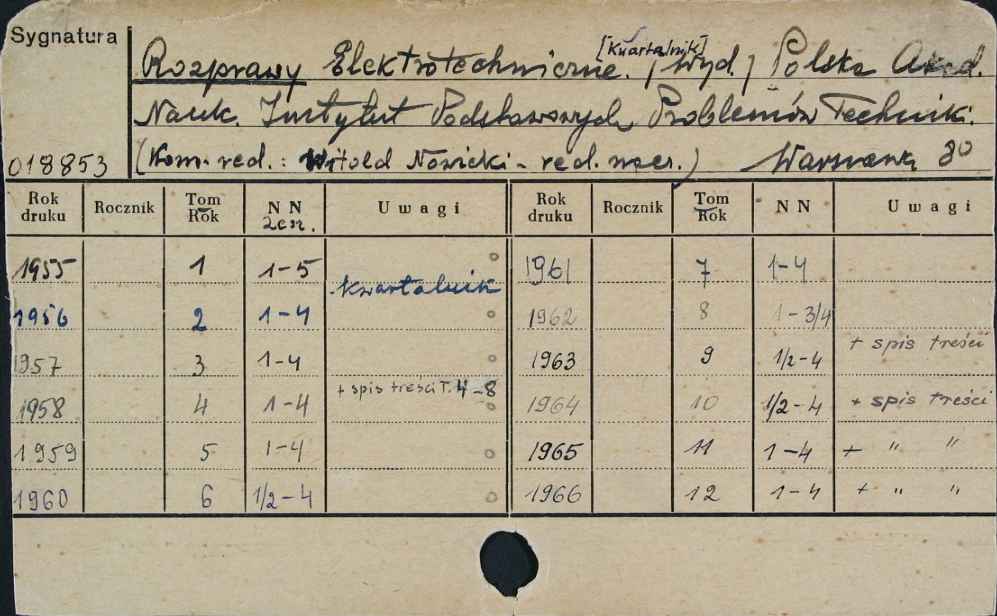 Sygnatura
[Kwartalnik]
Rozprawy Elektrotechniczne. /Wyd./ Polska Akad.
Nauk. Instytut Podstawowych Problemów Techniki.
018853 (Kom. red.: Witold Nowicki - red. nacz.) Warszawa 80
Rok druku Rocznik Tom Rok NN zesz. Uwagi Rok druku Rocznik Tom Rok NN Uwagi
1955 1 1-5 1961 7 1-4
kwartalnik
1956 2 1-4 1962 8 1-3/4
1957 3 1-4 1963 9 1/2-4 + spis treści
1958 4 1-4 + spis treści T. 4-8 1964 10 1/2-4 + spis treści
1959 5 1-4 1965 11 1-4 + " "
1960 6 1/2-4 1966 12 1-4 + " "